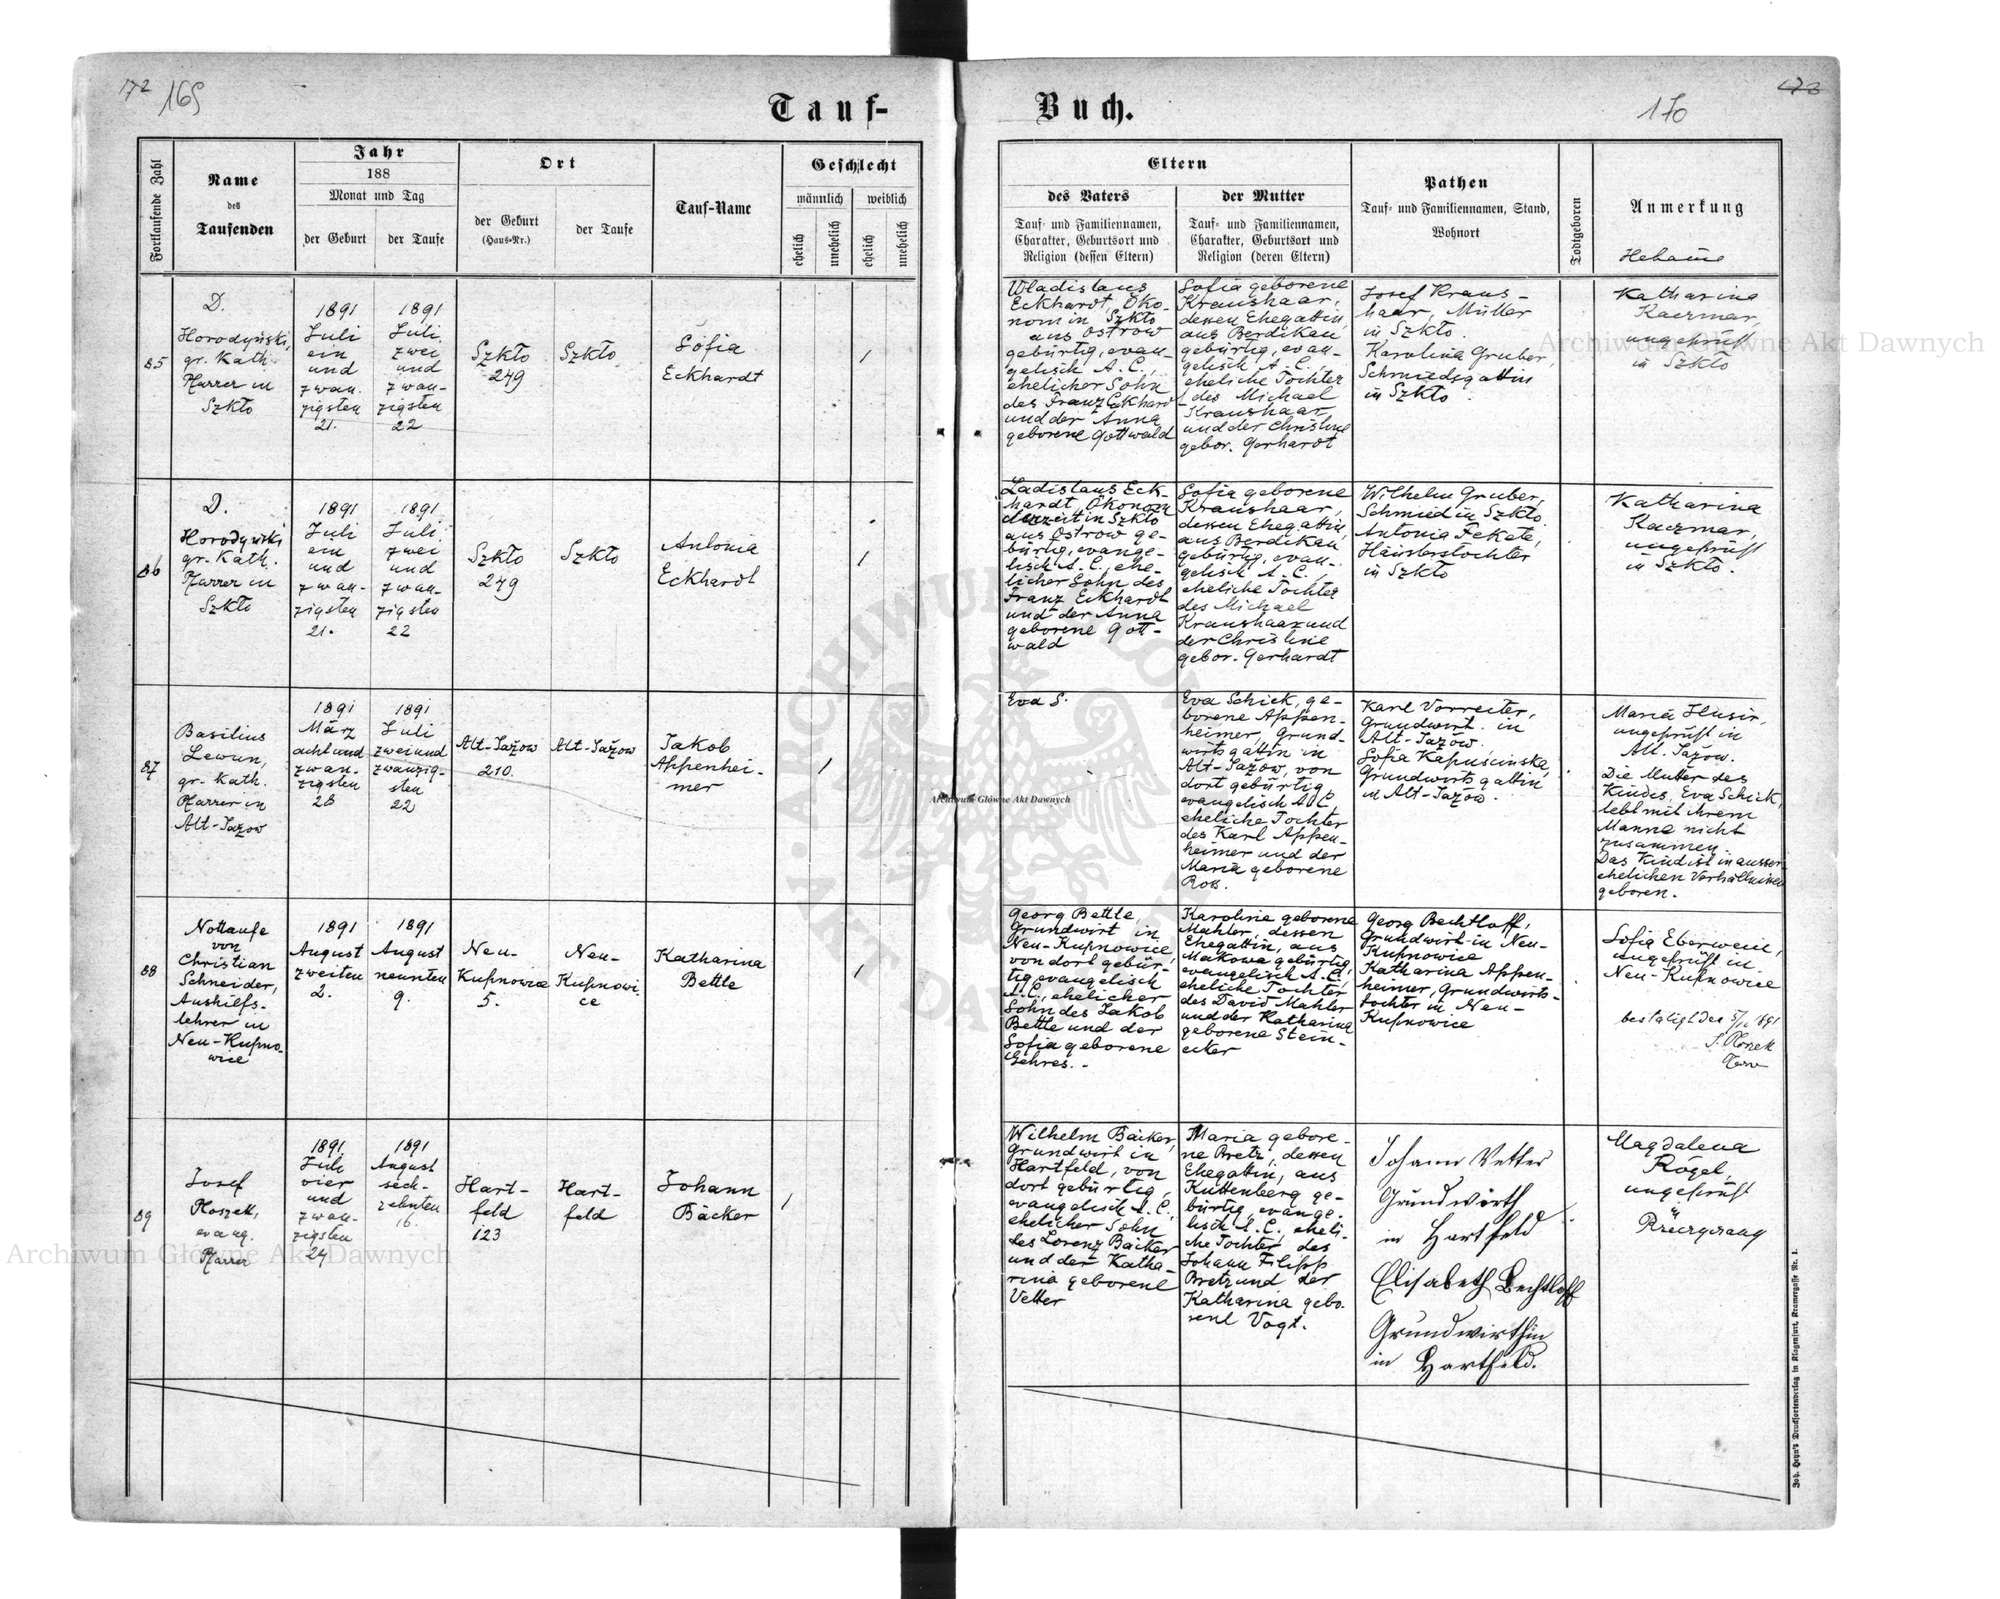 172 169
Tauf-
Buch.
170
173
Fortlaufende Zahl
Name
des
Taufenden
Jahr
188
Monat und Tag
der Geburt
der Taufe
Ort
der Geburt
(Haus-Nr.)
der Taufe
Tauf-Name
Geschlecht
männlich
weiblich
ehelich
unehelich
ehelich
unehelich
Eltern
des Vaters
Tauf- und Familiennamen,
Charakter, Geburtsort und
Religion (dessen Eltern)
der Mutter
Tauf- und Familiennamen,
Charakter, Geburtsort und
Religion (deren Eltern)
Pathen
Tauf- und Familiennamen, Stand,
Wohnort
Todtgeboren
Anmerkung
Hebame
85
D.
Horodyński,
gr. Kath.
Pfarrer in
Szkło
1891
Juli
ein
und
zwan-
zigsten
21.
1891
Juli
zwei
und
zwan-
zigsten
22
Szkło
249
Szkło
Sofia
Eckhardt
1
Wladislaus
Eckhardt Öko-
nom in Szkło
aus Ostrow
gebürtig, evan-
gelisch A. C.,
ehelicher Sohn
des Franz Eckhardt
und der Anna
geborene Gottwald
Sofia geborene
Kraushaar,
dessen Ehegattin,
aus Berdikau
gebürtig, evan-
gelisch A. C.,
eheliche Tochter
des Michael
Kraushaar
und der Christine
gebor. Gerhardt
Josef Kraus-
haar, Müller
in Szkło
Karolina Gruber,
Schmiedsgattin
in Szkło.
Katharina
Kaczmar,
ungeprüft
in Szkło
86
D.
Horodyński
gr. Kath.
Pfarrer in
Szkło
1891
Juli
ein
und
zwan-
zigsten
21.
1891
Juli
zwei
und
zwan-
zigsten
22
Szkło
249
Szkło
Antonia
Eckhardt
1
Ladislaus Eck-
hardt, Ökonom
derzeit in Szkło
aus Ostrow ge-
bürtig, evange-
lisch A. C., ehe-
licher Sohn des
Franz Eckhardt
und der Anna
geborene Gott-
wald
Sofia geborene
Kraushaar,
dessen Ehegattin,
aus Berdikau
gebürtig, evan-
gelisch A. C.,
eheliche Tochter
des Michael
Kraushaar und
der Christine
gebor. Gerhardt
Wilhelm Gruber,
Schmied in Szkło
Antonia Fekete,
Häuslerstochter
in Szkło
Katharina
Kaczmar,
ungeprüft
in Szkło.
87
Basilius
Lewun,
gr. Kath.
Pfarrer in
Alt-Jazow
1891
März
acht und
zwan-
zigsten
28
1891
Juli
zwei und
zwanzig-
sten
22
Alt-Jażow
210.
Alt-Jażow
Jakob
Appenhei-
mer
1
Eva S.
Eva Schick, ge-
borene Appen-
heimer, Grund-
wirtsgattin in
Alt-Jażow, von
dort gebürtig,
evangelisch A. C.
eheliche Tochter
des Karl Appen-
heimer und der
Maria geborene
Ross.
Karl Vorreiter,
Grundwirt in
Alt-Jażow.
Sofia Kapuścinska,
Grundwirtsgattin
in Alt-Jażow.
Maria Husir,
ungeprüft in
Alt. Jażow.
Die Mutter des
Kindes, Eva Schick,
lebt mit ihrem
Manne nicht
zusammen.
Das Kind ist in ausser
ehelichen Verhältnissen
geboren.
88
Nottaufe
von
Christian
Schneider,
Aushilfs-
lehrer in
Neu-Kupno-
wice
1891
August
zweiten
2.
1891
August
neunten
9.
Neu-
Kupnowice
5.
Neu-
Kupnowi-
ce
Katharina
Bettle
1
Georg Bettle,
Grundwirt in
Neu-Kupnowice,
von dort gebür-
tig, evangelisch
A. C., ehelicher
Sohn des Jakob
Bettle und der
Sofia geborene
Gehres. -
Karoline geborene
Mahler, dessen
Ehegattin, aus
Makowa gebürtig,
evangelisch A. C.,
eheliche Tochter
des David Mahler
und der Katharina
geborene Stein-
ecker
Georg Bechtloff,
Grundwirt in Neu-
Kupnowice
Katharina Appen-
heimer, Grundwirts-
tochter in Neu-
Kupnowice
Sofia Eberwein,
ungeprüft in
Neu-Kupnowice
bestätigt den 1891
89
Josef
Ploszek,
evang.
Pfarrer
1891.
Juli
vier
und
zwan-
zigsten
24
1891
August
sech-
zehnten
16.
Hart-
feld
123
Hart-
feld
Johann
Bäcker
1
Wilhelm Bäcker,
Grundwirt in
Hartfeld, von
dort gebürtig,
evangelisch A. C.,
ehelicher Sohn
des Lorenz Bäcker
und der Katha-
rina geborene
Vetter
Maria gebore-
ne Bretz, dessen
Ehegattin, aus
Kuttenberg ge-
bürtig, evange-
lisch A. C., eheli-
che Tochter des
Johann Filipp
Bretz und der
Katharina gebo-
rene Vogt.
Johann Vetter
Grundwirth
in Hartfeld
Elisabeth Bechtloff
Grundwirthin
in Hartfeld.
Magdalena
Rogel,
ungeprüft
Joh. Heyn's Drucksortenverlag in Klagenfurt, Kramergasse Nr. 1.
Archiwum Główne Akt Dawnych
Archiwum Główne Akt Dawnych
Archiwum Główne Akt Dawnych